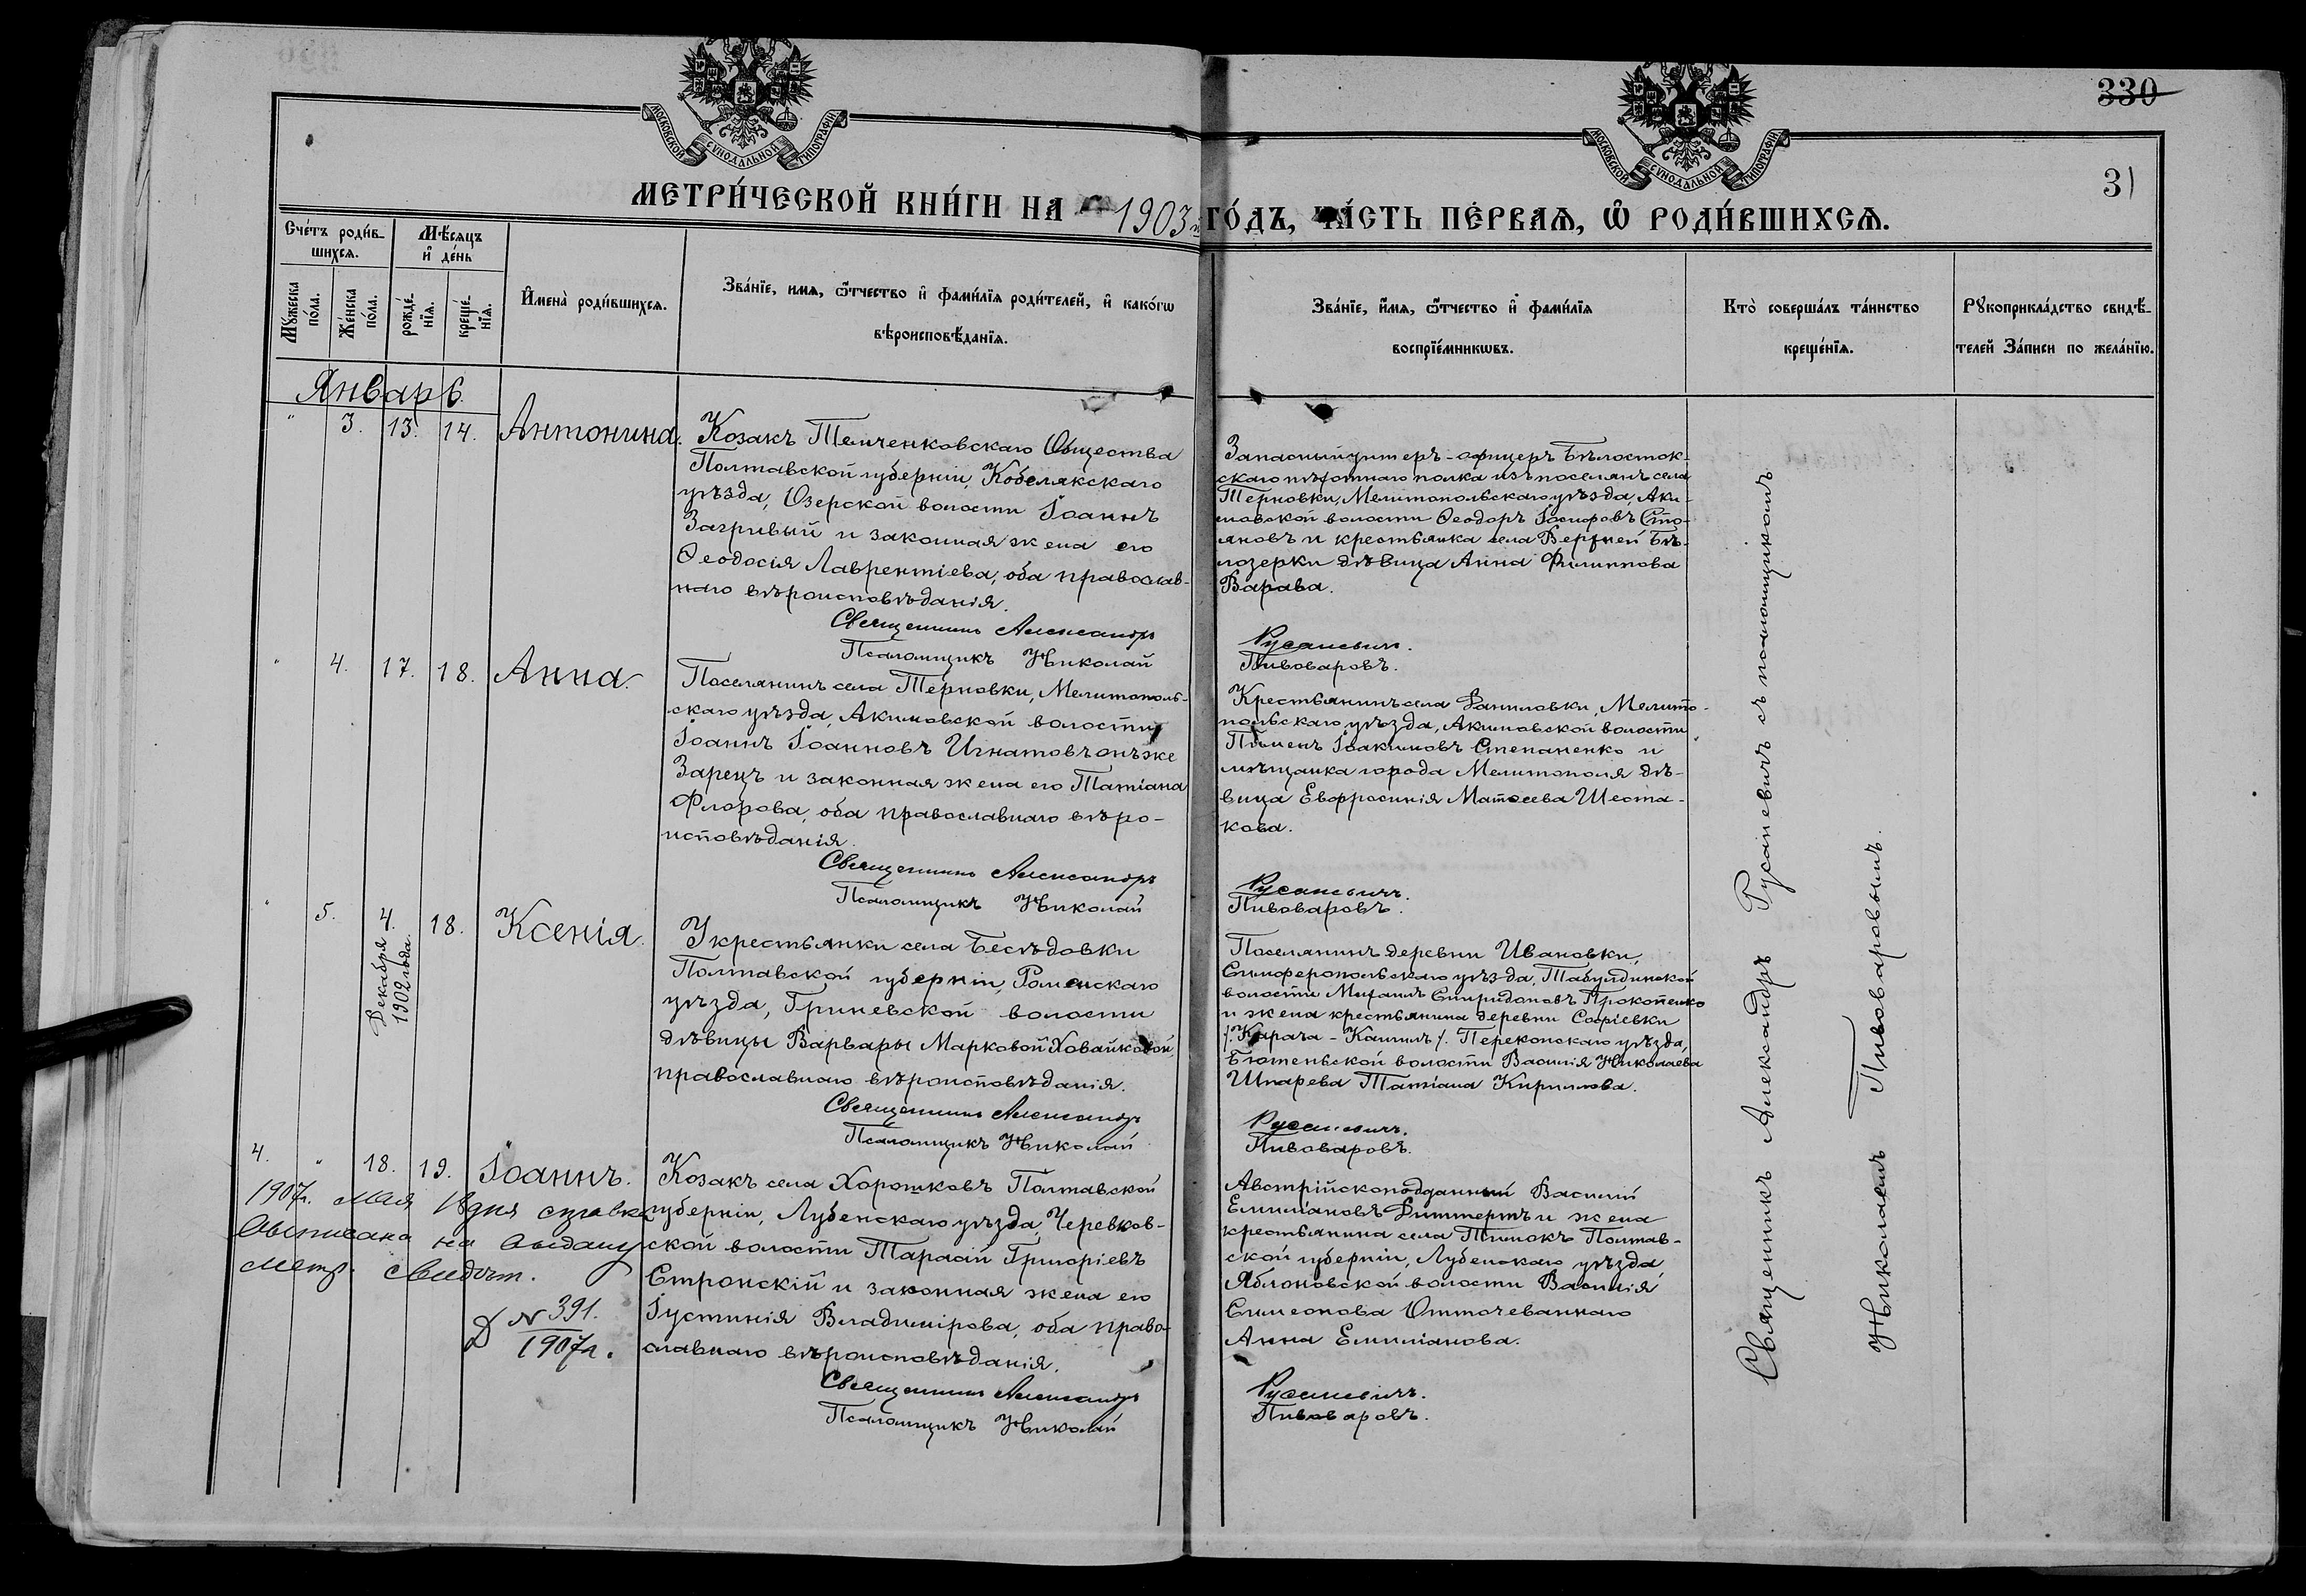 330
31
МОСКОВСКОЙ СУНОДАЛЬНОЙ ТИПОГРАФІИ
МОСКОВСКОЙ СУНОДАЛЬНОЙ ТИПОГРАФІИ
МЕТРИ́ЧЕСКОЙ КНИ́ГИ НА 1903й ГО́ДЪ, ЧА́СТЬ ПЕ́РВАѦ, Ѡ҆ РОДИ́ВШИХСѦ.
Сче́тъ роди́в-
шихсѧ.
Мѣ́сѧцъ
и҆ де́нь
Мꙋ́жеска по́ла.
Же́нска по́ла.
рожде́-
нїѧ.
креще́-
нїѧ.
И҆мена̀ роди́вшихсѧ.
Зва́нїе, имѧ, ѻ҆́тчество и҆ фами́лїѧ роди́телей, и҆ како́гѡ
вѣроисповѣ́данїѧ.
Зва́нїе, и҆́мѧ, ѻ҆́тчество и҆ фами́лїѧ
воспрїе́мникѡвъ.
Кто̀ соверша́лъ та́инство
креще́нїѧ.
Рꙋкоприкла́дство свидѣ́-
телей За́писи по жела́нїю.
Январь.
" 3. 13. 14. Антонина.
Козакъ Темченковскаго Общества
Полтавской губерніи, Кобелякскаго
уѣзда, Озерской волости Іоаннъ
Загривый и законная жена его
Ѳеодосія Лаврентіева, оба православ-
наго вѣроисповѣданія.
Священникъ Александръ
Псаломщикъ Николай
Запасный унтеръ-офицеръ Бѣлосток-
скаго пѣхотнаго полка изъ поселянъ села
Терновки, Мелитопольскаго уѣзда, Аки-
мовской волости Ѳеодоръ Іосифовъ Сто-
яновъ и крестьянка села Верхней Бѣ-
лозерки дѣвица Анна Филиппова
Варава.
Русаневичъ.
Пивоваровъ.
" 4. 17. 18. Анна.
Поселянинъ села Терновки, Мелитополь-
скаго уѣзда, Акимовской волости
Іоаннъ Іоанновъ Игнатовъ онъ же
Зарецъ и законная жена его Татіана
Флорова, оба православнаго вѣро-
исповѣданія.
Священникъ Александръ
Псаломщикъ Николай
Крестьянинъ села Даниловки, Мелито-
польскаго уѣзда, Акимовской волости
Пименъ Іоакимовъ Степаненко и
мѣщанка города Мелитополя дѣ-
вица Евфросинія Матѳеева Шеста-
кова.
Русаневичъ.
Пивоваровъ.
" 5. 4. Декабря 1902 года. 18. Ксенія.
У крестьянки села Бесѣдовки
Полтавской губерніи, Роменскаго
уѣзда, Гриневской волости
дѣвицы Варвары Марковой Ховайковой,
православнаго вѣроисповѣданія.
Священникъ Александръ
Псаломщикъ Николай
Поселянинъ деревни Ивановки,
Симферопольскаго уѣзда, Табулдинской
волости Михаилъ Спиридоновъ Прокопенко
и жена крестьянина деревни Софіевки
/. Карача-Кашикъ /. Перекопскаго уѣзда,
Бютеньской волости Василія Николаева
Шпарева Татіана Кириллова.
Русаневичъ.
Пивоваровъ.
4. " 18. 19. Іоаннъ.
Козакъ села Хорошковъ Полтавской
губерніи, Лубенскаго уѣзда, Черевков-
ской волости Тарасій Григоріевъ
Стронскій и законная жена его
Іустинія Владимірова, оба право-
славнаго вѣроисповѣданія.
Священникъ Александръ
Псаломщикъ Николай
Австрійскоподданный Василій
Емиліановъ Диттертъ и жена
крестьянина села Тишокъ Полтав-
ской губерніи, Лубенскаго уѣзда
Яблоновской волости Василія
Симеонова Отточеваннаго
Анна Емиліанова.
Русаневичъ.
Пивоваровъ.
1907г. мая дня справка
выписана на выдачу
метр. свидѣт.
Д № 391.
1907г.
Священникъ Александръ Русаневичъ съ псаломщикомъ
Николаемъ Пивоваровымъ.